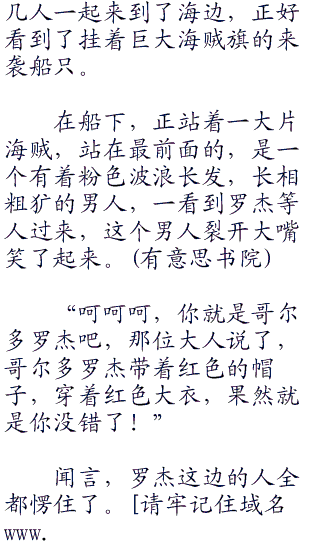 几人一起来到了海边，正好
看到了挂着巨大海贼旗的来
袭船只。
在船下，正站着一大片
海贼，站在最前面的，是一
个有着粉色波浪长发，长相
粗犷的男人，一看到罗杰等
人过来，这个男人裂开大嘴
笑了起来。(有意思书院)
“呵呵呵，你就是哥尔
多罗杰吧，那位大人说了，
哥尔多罗杰带着红色的帽
子，穿着红色大衣，果然就
是你没错了！”
闻言，罗杰这边的人全
都愣住了。[请牢记住域名
www.